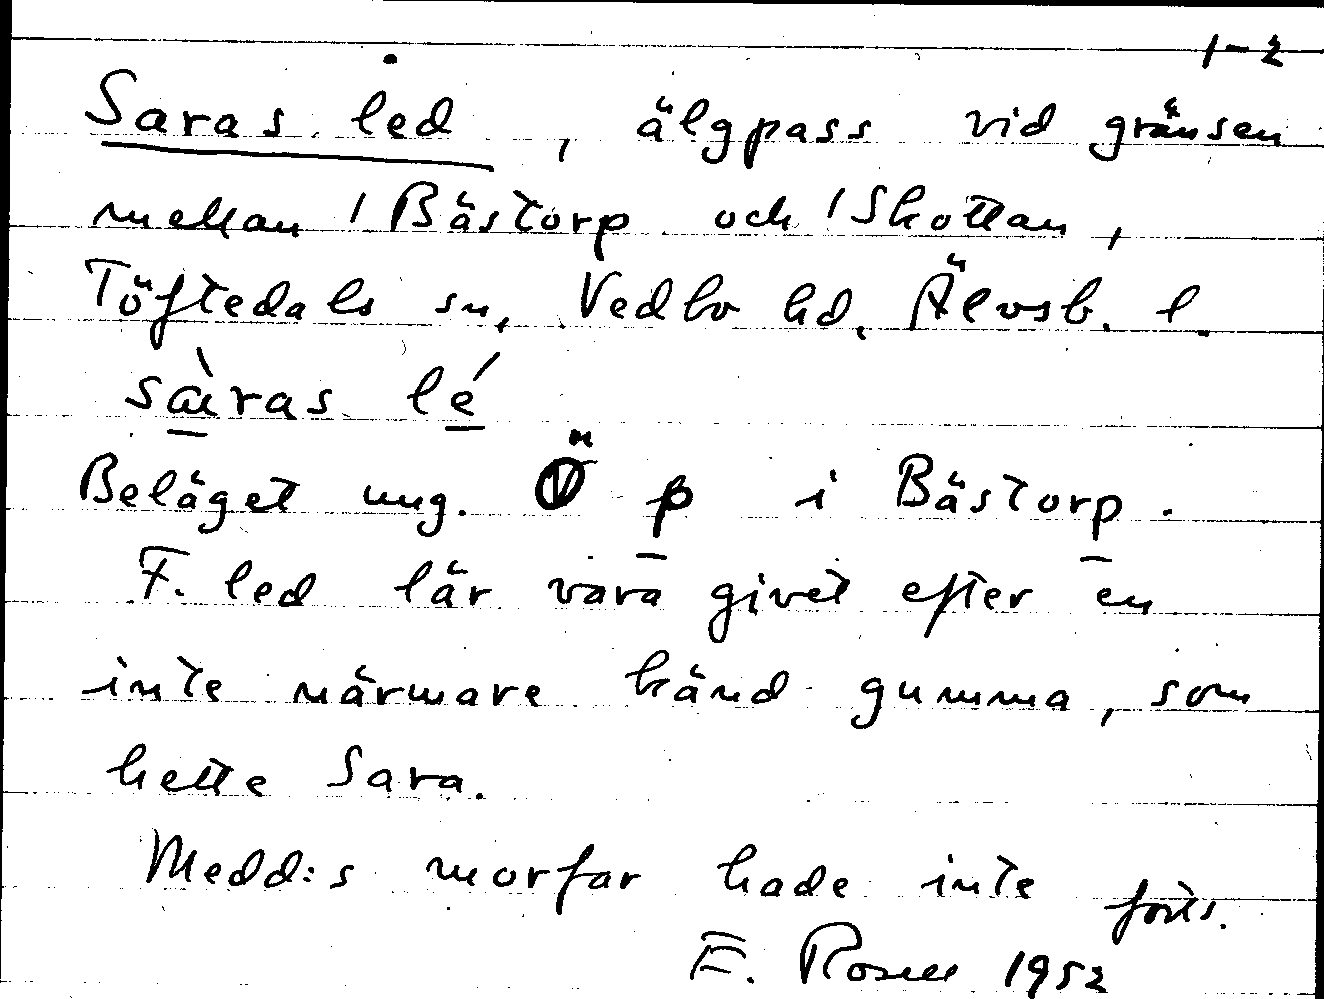 1-2
Saras led, älgpass vid gränsen
mellan / Bästorp och / Skottan,
Töftedals sn, Vedbo hd, Älvsb. l.
sàras lé
Beläget ung. Ö p i Bästorp.
F. led lär vara givet efter en
inte närmare känd gumma, som
hette Sara.
Medd:s morfar hade inte forts.
E. Rosell 1952